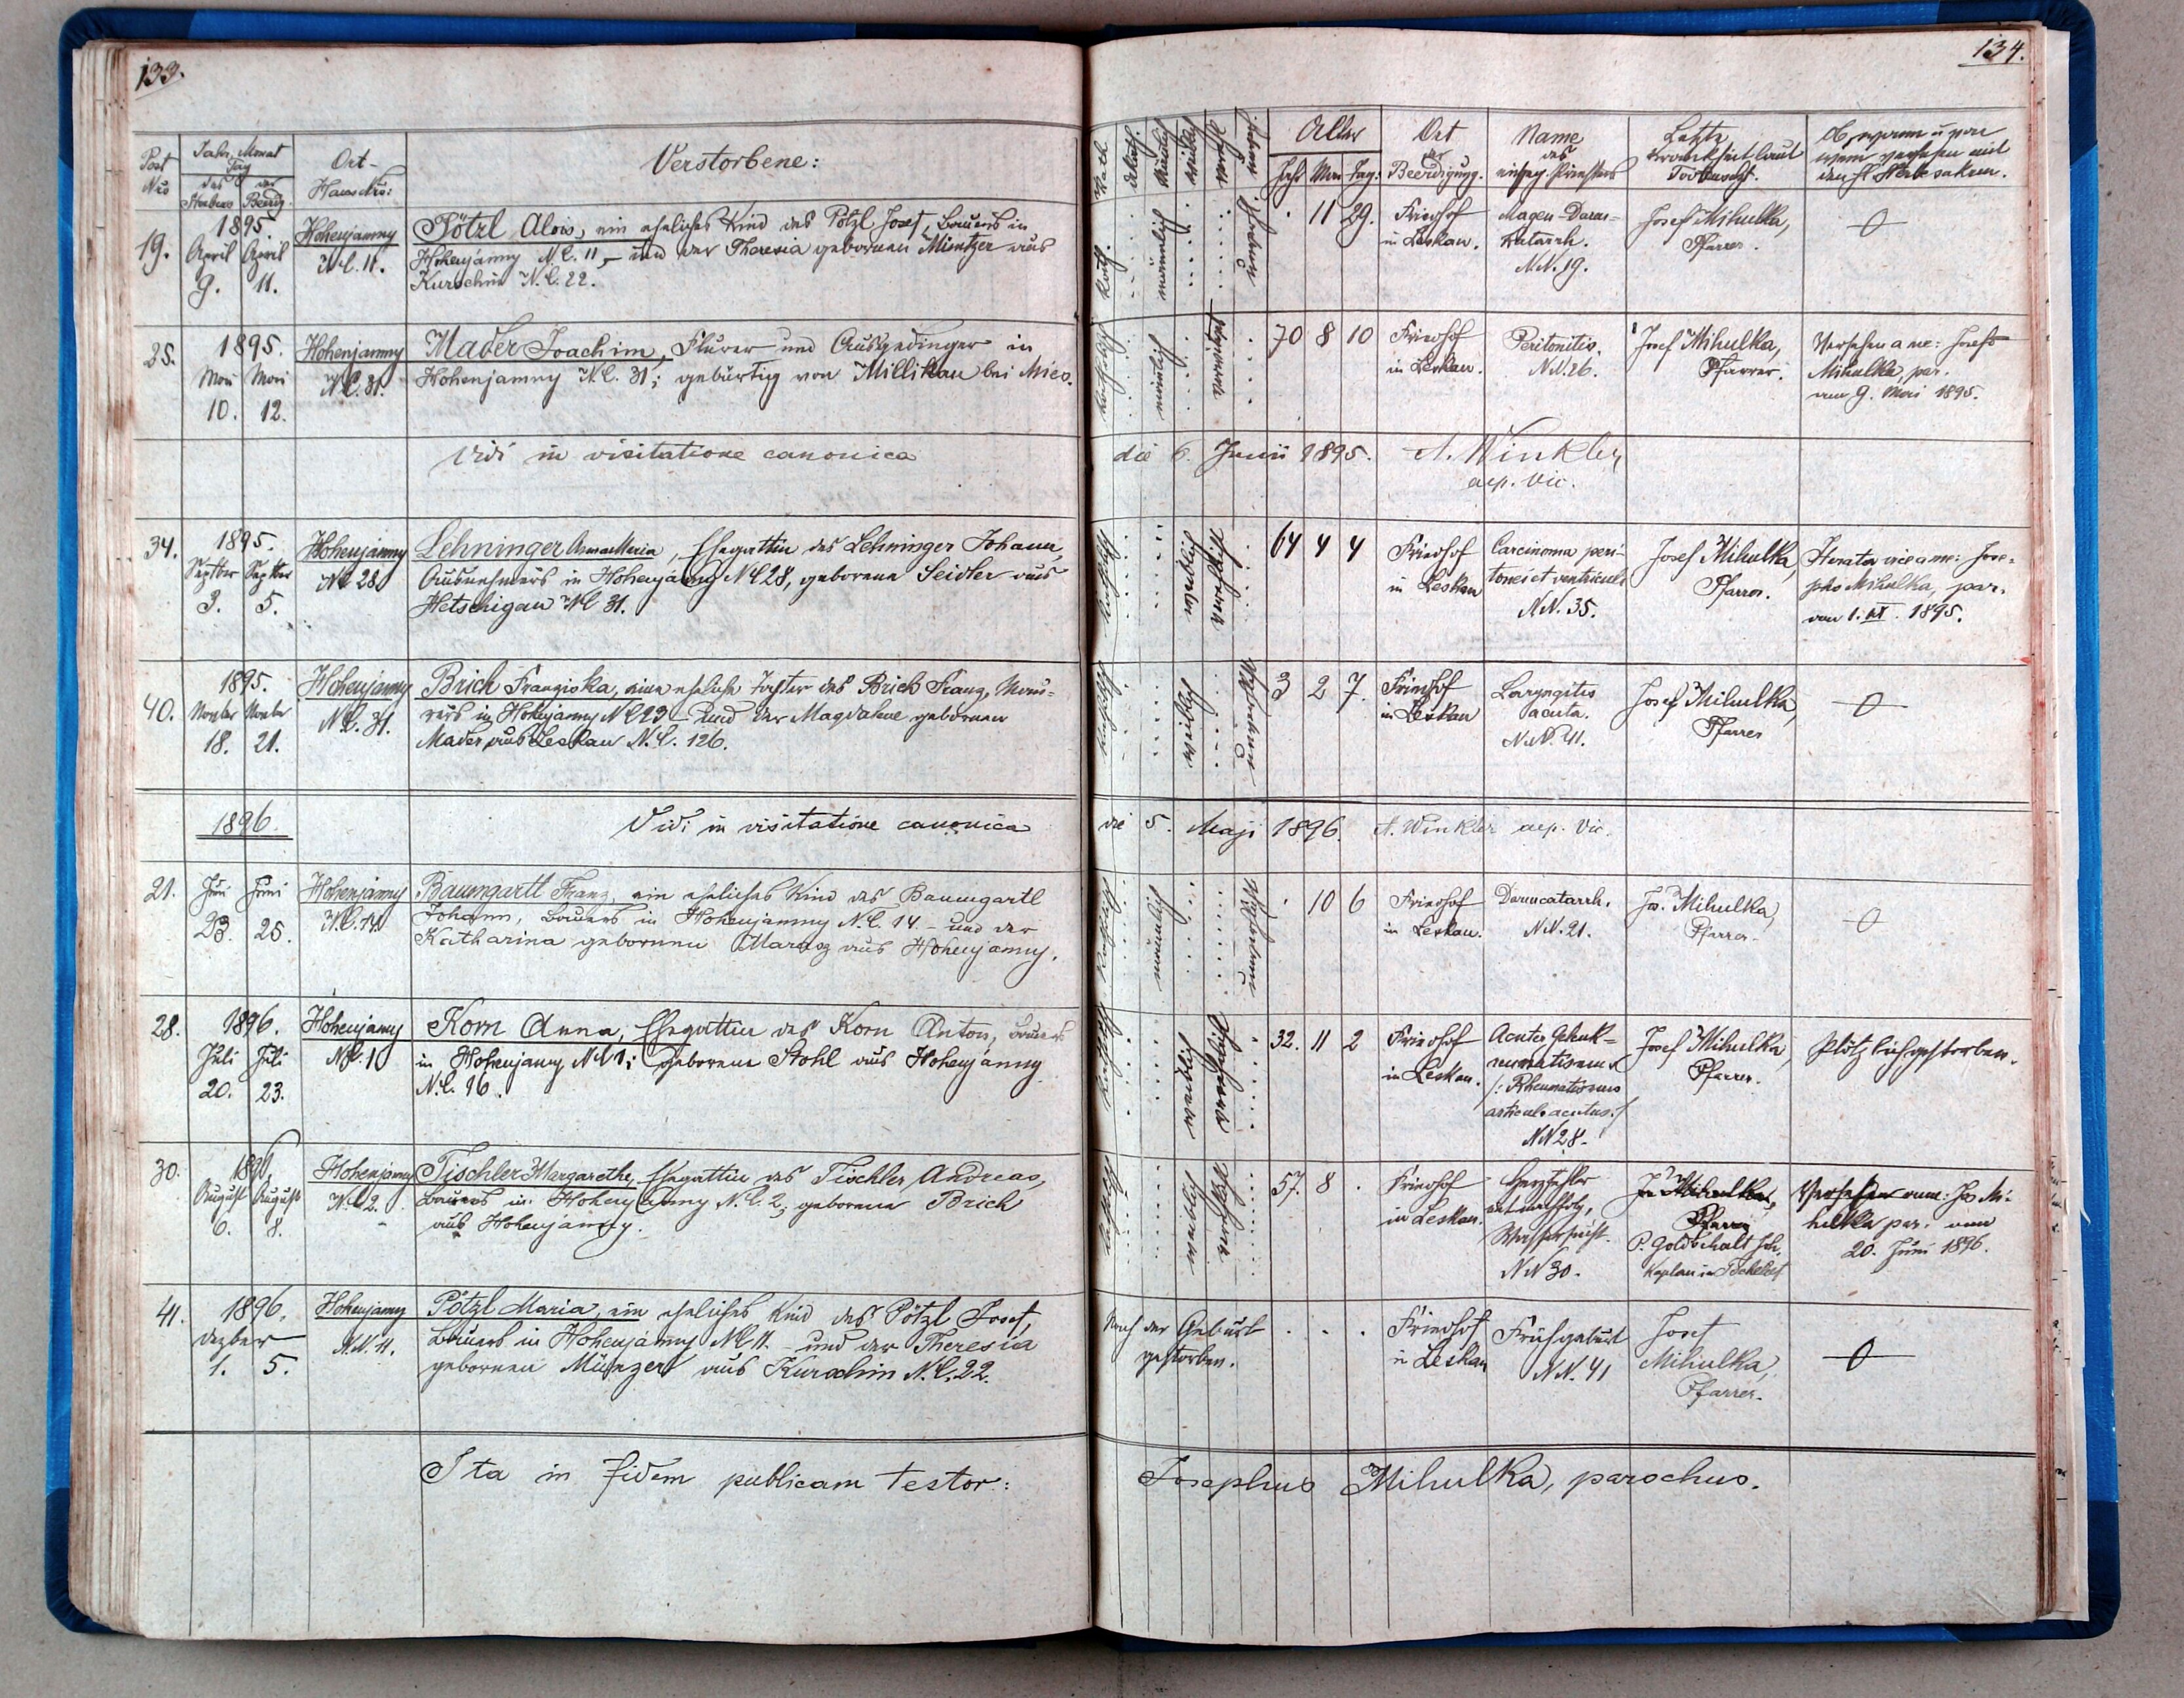 133.
134.
Post Nro
Jahr, Monat
Tag
des Sterbens
der Beerdig.
Ort-
Haus Nro:
Verstorbene:
Kath.
akath.
männlich
weiblich
Alter
Jahr Mon Tag:
Ort
der
Beerdigung.
Name
des
einseg. Priesters
Letzte
Krankheit laut
Ob, wann u von
wem versehen mit
19.
1895
April April
9. 11.
Hohenjamny
N.C. 11.
Pötzl Alois, ein eheliches Kind des Pötzl Josef, Bauers in
Hohenjamny N.C. 11, – und der Theresia gebornen Müntzer aus
Kurschin N.C. 22.
kath.
männlich
11 29.
Friedhof
in Leskau.
Magen-Darm-
katarrh.
N.N. 19.
Josef Mihulka,
Pfarrer.
0
25.
1895.
Mai Mai
10. 12.
Hohenjamny
N.C. 31.
Mader Joachim, Flurer und Ausgedinger in
Hohenjamny N.C. 31; gebürtig von Millikau bei Mies.
katholisch
männlich
verwitwet
70 8 10
Friedhof
in Leskau.
Peritonitis.
N.N. 26.
Josef Mihulka,
Pfarrer.
Versehen a me: Josef
Mihulka, par.
am 9. Mai 1895.
Vidi in visitatione canonica die 6. Junii 1895. A. Winkler
aep. Vic.
34.
1895.
Septber Septber
3. 5.
Hohenjamny
NC 28
Lehninger Anna Maria, Ehegattin des Lehninger Johann,
Ausnehmers in Hohenjamny NC 28, geborene Seidler aus
Hetschigau NC 31.
katholisch
weiblich
verehelicht
64 4 4
Friedhof
in Leskau
Carcinoma peri-
tonei et ventriculi
N.N. 35.
Josef Mihulka,
Pfarrer.
Iterata vice a me: Jose-
pho Mihulka, par.
1895.
40.
1895.
Novber Novber
18. 21.
Hohenjamny
N.C. 31.
Brich Franziska, eine eheliche Tochter des Brich Franz, Mau-
rers in Hohenjamny NC 23 – und der Magdalene gebornen
Mader aus Leskau N.C. 126.
katholisch
weiblich
3 2 7.
Friedhof
in Leskau
Laryngitis
acuta.
N.N. 41.
Josef Mihulka,
Pfarrer
0
1896.
Vidi in visitatione canonica die 5. Maji 1896. A. Winkler aep. Vic.
21.
Juni Juni
23. 25.
Hohenjamny
N.C. 14.
Baumgartl Franz, ein eheliches Kind des Baumgartl
Johann, Bauers in Hohenjamny N.C. 14. – und der
Katharina gebornen Marasz aus Hohenjamny.
katholisch
männlich
10 6
Friedhof
in Leskau.
Darmcatarrh.
N.N. 21.
Jos. Mihulka,
Pfarrer.
0
28.
1896.
Juli Juli
20. 23.
Hohenjamny
N.C. 1
Korn Anna, Ehegattin des Korn Anton, Bauers
in Hohenjamny NC 1; geborene Stohl aus Hohenjamny
N.C. 16.
katholisch
weiblich
verehelicht
32. 11 2
Friedhof
in Leskau.
Acuter Gelenk-
rheumatismus
/: Rheumatismus
articul. acutus :/
NN 28.
Josef Mihulka
Pfarrer.
Plötzlich gestorben.
30.
1896.
August August
6. 8.
Hohenjamny
N.C. 2.
Tischler Margarethe, Ehegattin des Tischler Andreas,
Bauers in Hohenjamny N.C. 2, geborene Brich
aus Hohenjamny.
katholisch
weiblich
verehelicht
57. 8 .
Friedhof
in Leskau.
Herzfehler
Wassersucht.
NN 30.
Jos Mihulka,
Pfarrer
P. Goldschalt
Kaplan in
Versehen a me: Jos Mi-
hulka par. am
20. Juni 1896.
41.
1896.
Dezber
1. 5.
Hohenjamny
N.N. 11.
Pötzl Maria, ein eheliches Kind des Pötzl Josef,
Bauers in Hohenjamny NC 11. – und der Theresia
gebornen Münzer aus Kurschin N.C. 22.
Nach der Geburt
gestorben.
Friedhof
in Leskau
Frühgeburt
N.N. 41
Josef
Mihulka,
Pfarrer.
0
Ita in fidem publicam testor: Josephus Mihulka, parochus.